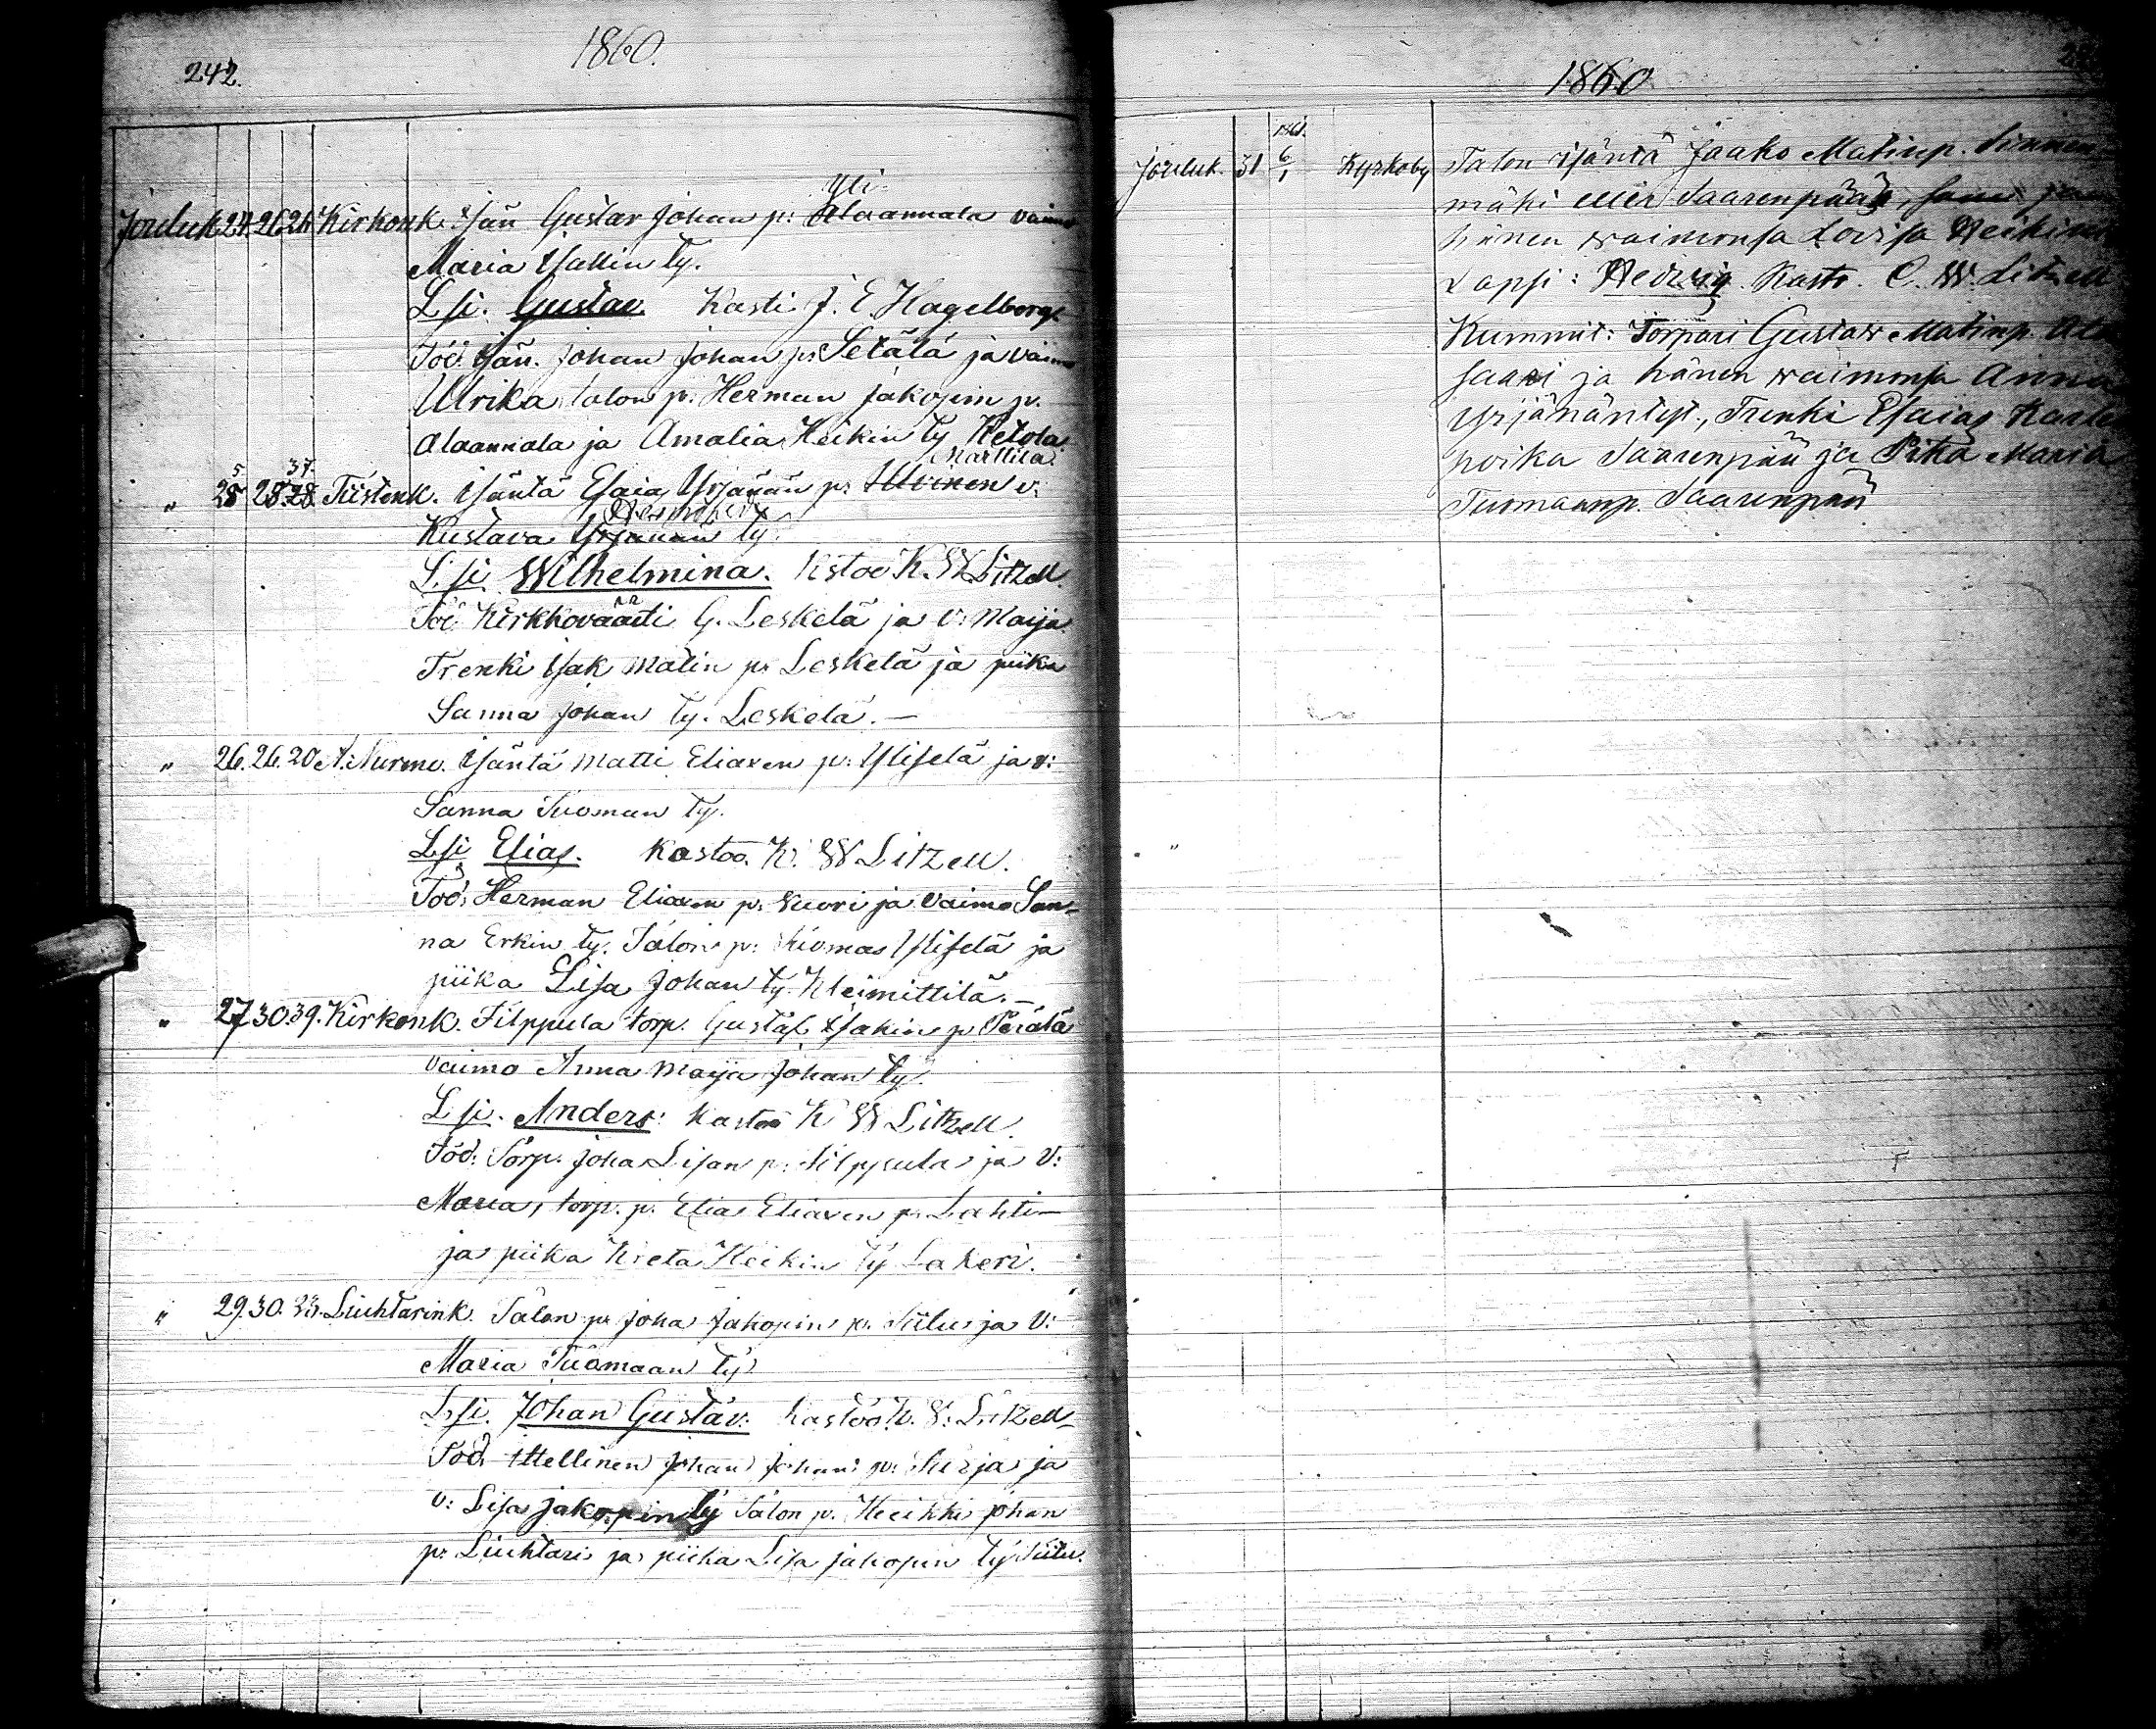 242.
1860.
Yli-
Jouluk. 24. 26. 24. Kirkonk. Isän Gustav Johan p: Alaannala vaimo
Maria Isakin ty.
L:si. Gustav. Kasti. J. E. Hagelberg.
Tod: Isän. Johan Johan p: Setälä ja vaimo
Ulrika, talon p. Herman Jakopin p.
Alaannala ja Amalia Heikin ty Ketola.
Marttila.
" 25 28 28. Tiistenk. Isäntä Esaia Yrjänän p: v:
Kustava Yrjänän ty.
L:si Wilhelmina. Kstoo K. W. Litzell.
Tod: Kirkkovääri G. Leskelä ja v: Maija.
Trenki Isak Matin p. Leskelä ja piika
Sanna Johan ty. Leskelä. —
" 26. 26. 20 A. Nurmo. Isäntä Matti Eliaxen p: Yliselä ja v:
Sanna Tuoman ty.
L:si Elias. Kastoo. K. W Litzell.
Tod: Herman Eliaxen p. Vuori ja vaimo San-
na Erkin ty. Talon p: Tuomas Yliselä ja
piika Lisa Johan ty. Kleimittilä. —
" 27 30 39. Kirkonk. Filppula torp. Gustaf Isakin p. Perälä
vaimo Anna Maija Johan ty.
L:si. Anders: Kastoo K W Litzell.
Tod: Torp. Joha Lisan p: Filppula ja v:
Maria, torp. p. Elias Eliaxen p. Lahti—
ja piika Kreta Heikin ty Lakeri.
" 29. 30. 33. Liuhtarink. Talon p. Joha Jakopin p. Tiilu ja v:
Maria Tuomaan ty.
L:si. Johan Gustav. Kastoo K. W: Litzell—
Tod: Itellinen Johan Johan p: Kurja ja
v: Lisa Jakopin ty Talon p. Heikki Johan
p. Liuhtari ja piika Lisa Jakopin ty Tiilu.
1860
1861.
Jouluk. 31 6/1 Kyrkoby Talon isäntä Jaako Matinp.
mäki eller Saarenpää,
hänen waimonsa Lovisa
Lapsi: Hedvig. Kasto. C. W. Litzell
Kummit: Torpari Gustaw Matinp. Ala
saari ja hänen waimonsa Anna
Yrjänäntyt., Trenki Esaias Kaarle
poika Saarenpää ja Pika Maria
Tuomaanp. Saarenpää